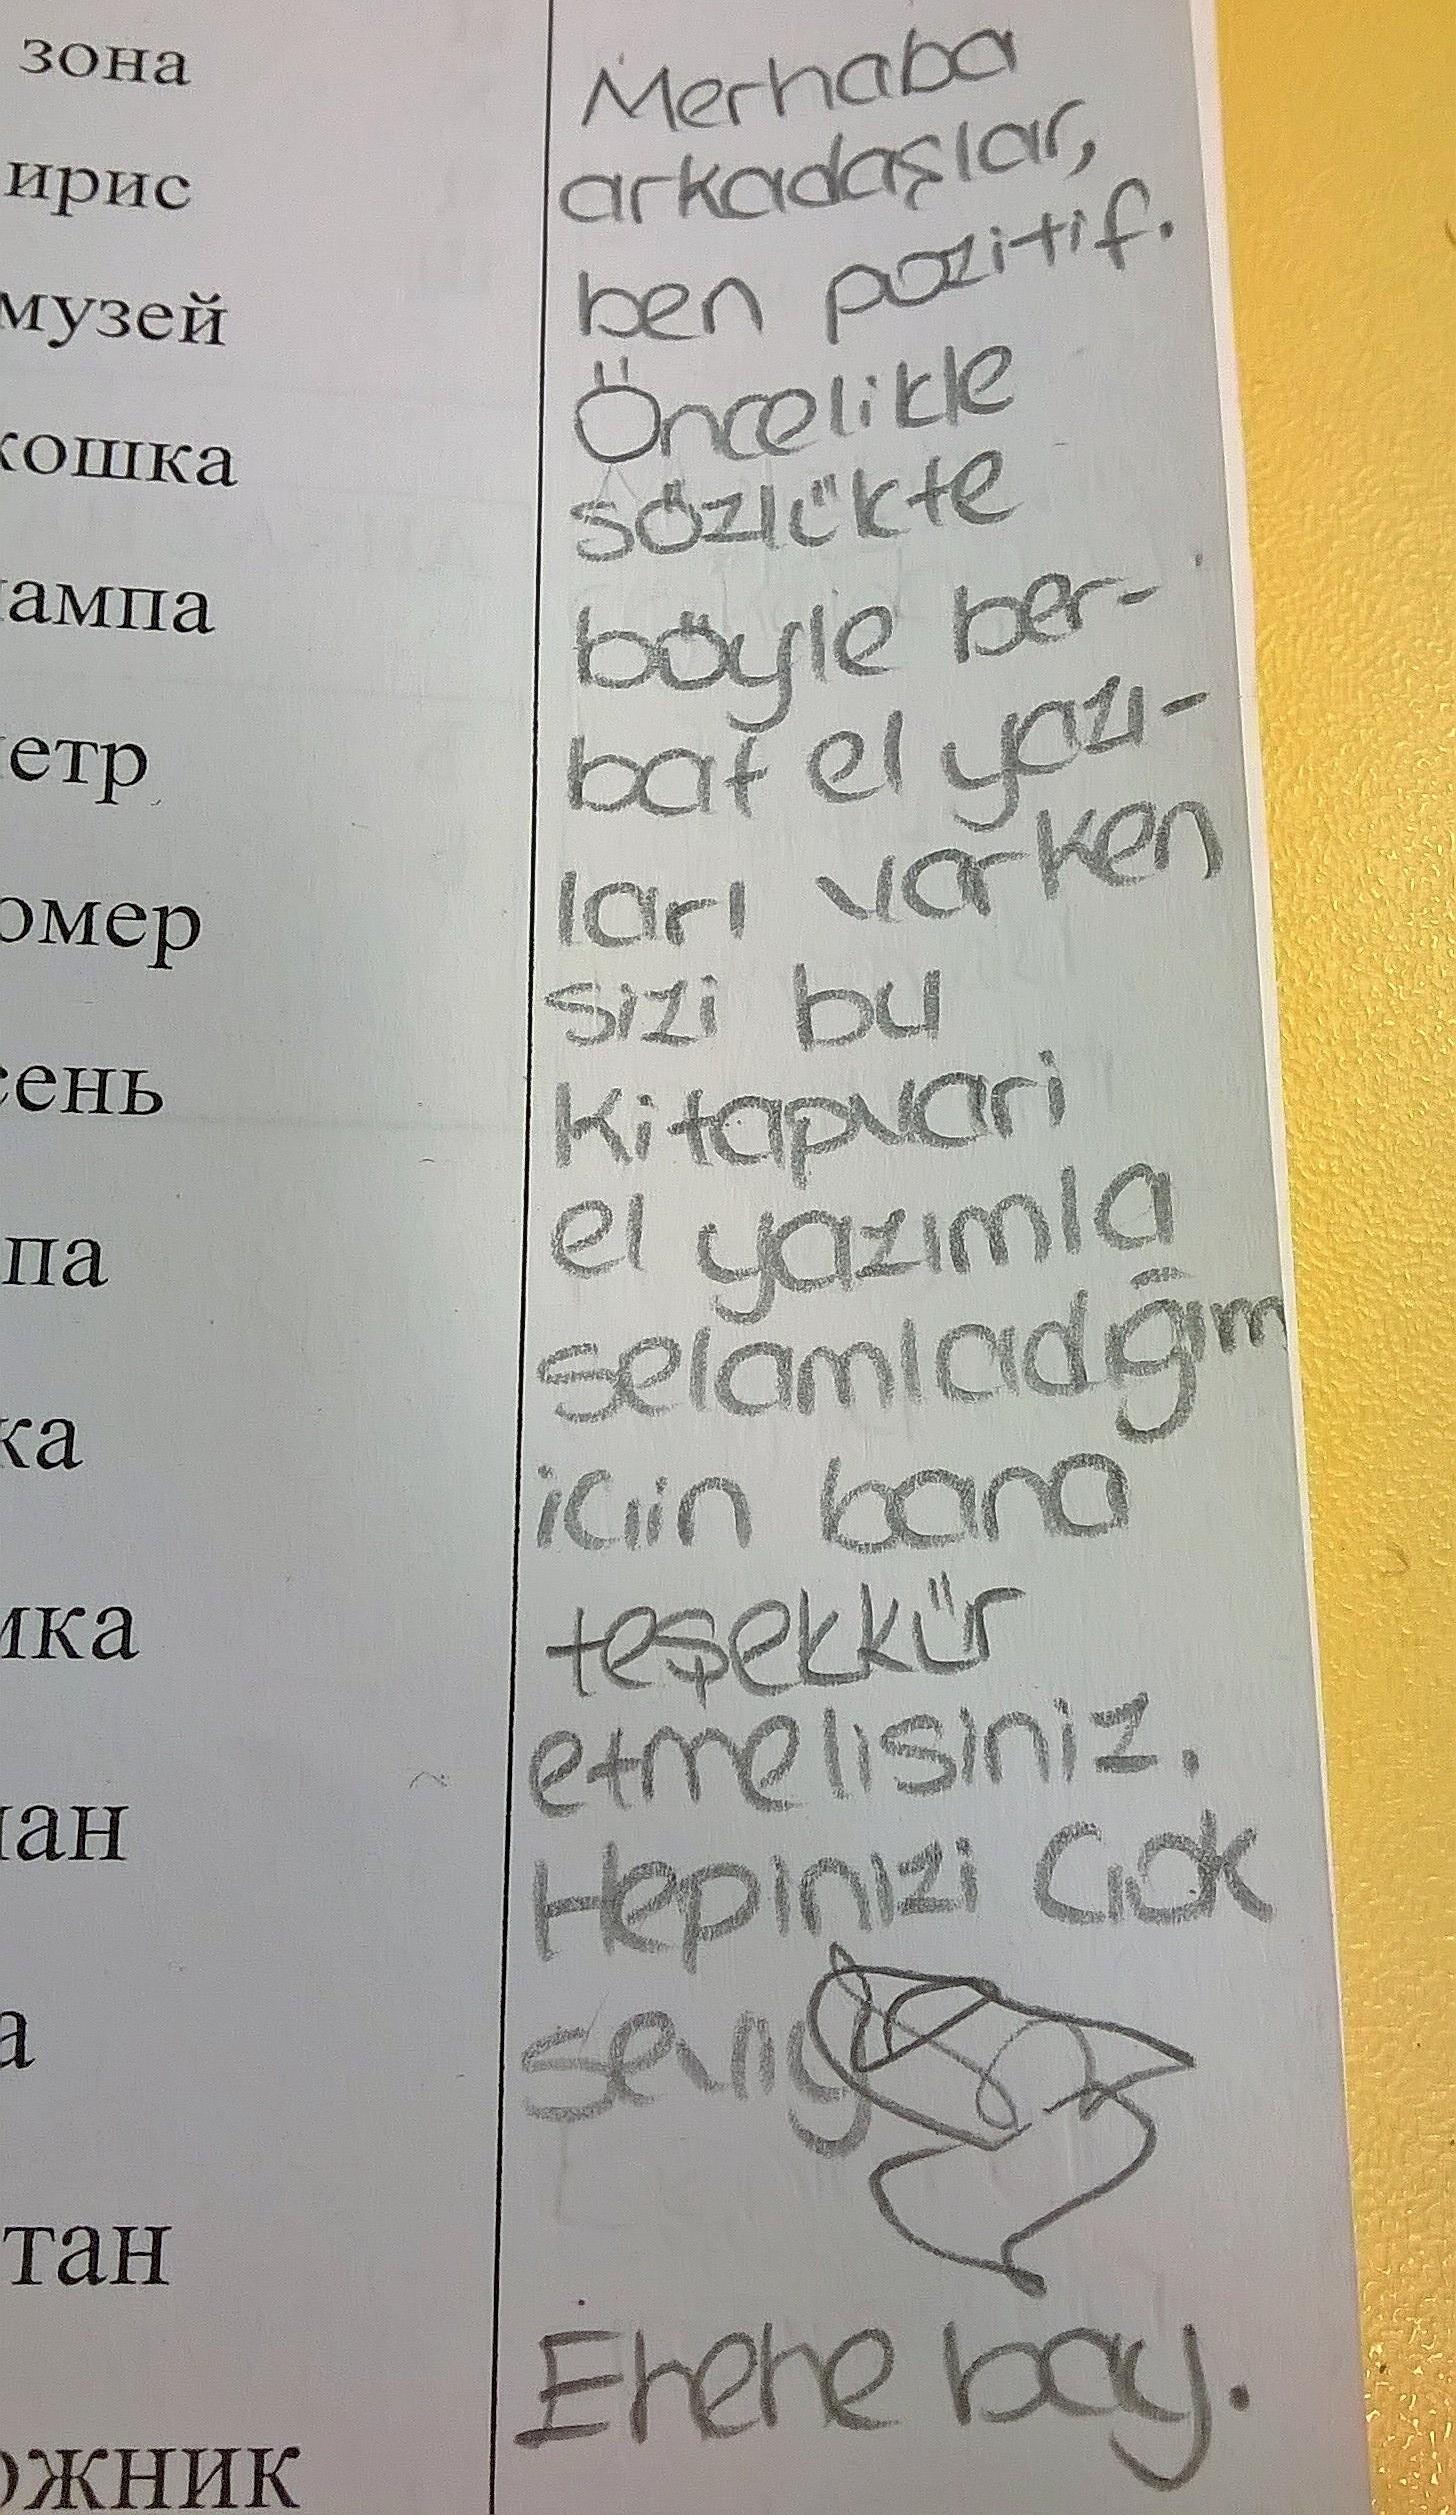 зона
ирис
музей
кошка
ампа
етр
омер
сень
па
ка
мка
ан
а
тан
ожник
Merhaba
arkadaşlar,
ben pozitif.
Öncelikle
sözlükte
böyle ber-
bat el yazı-
ları varken
sizi bu
kitapvari
el yazımla
selamladığım
için bana
teşekkür
etmelisiniz.
Hepinizi çok
seviy
Ehehe bay.